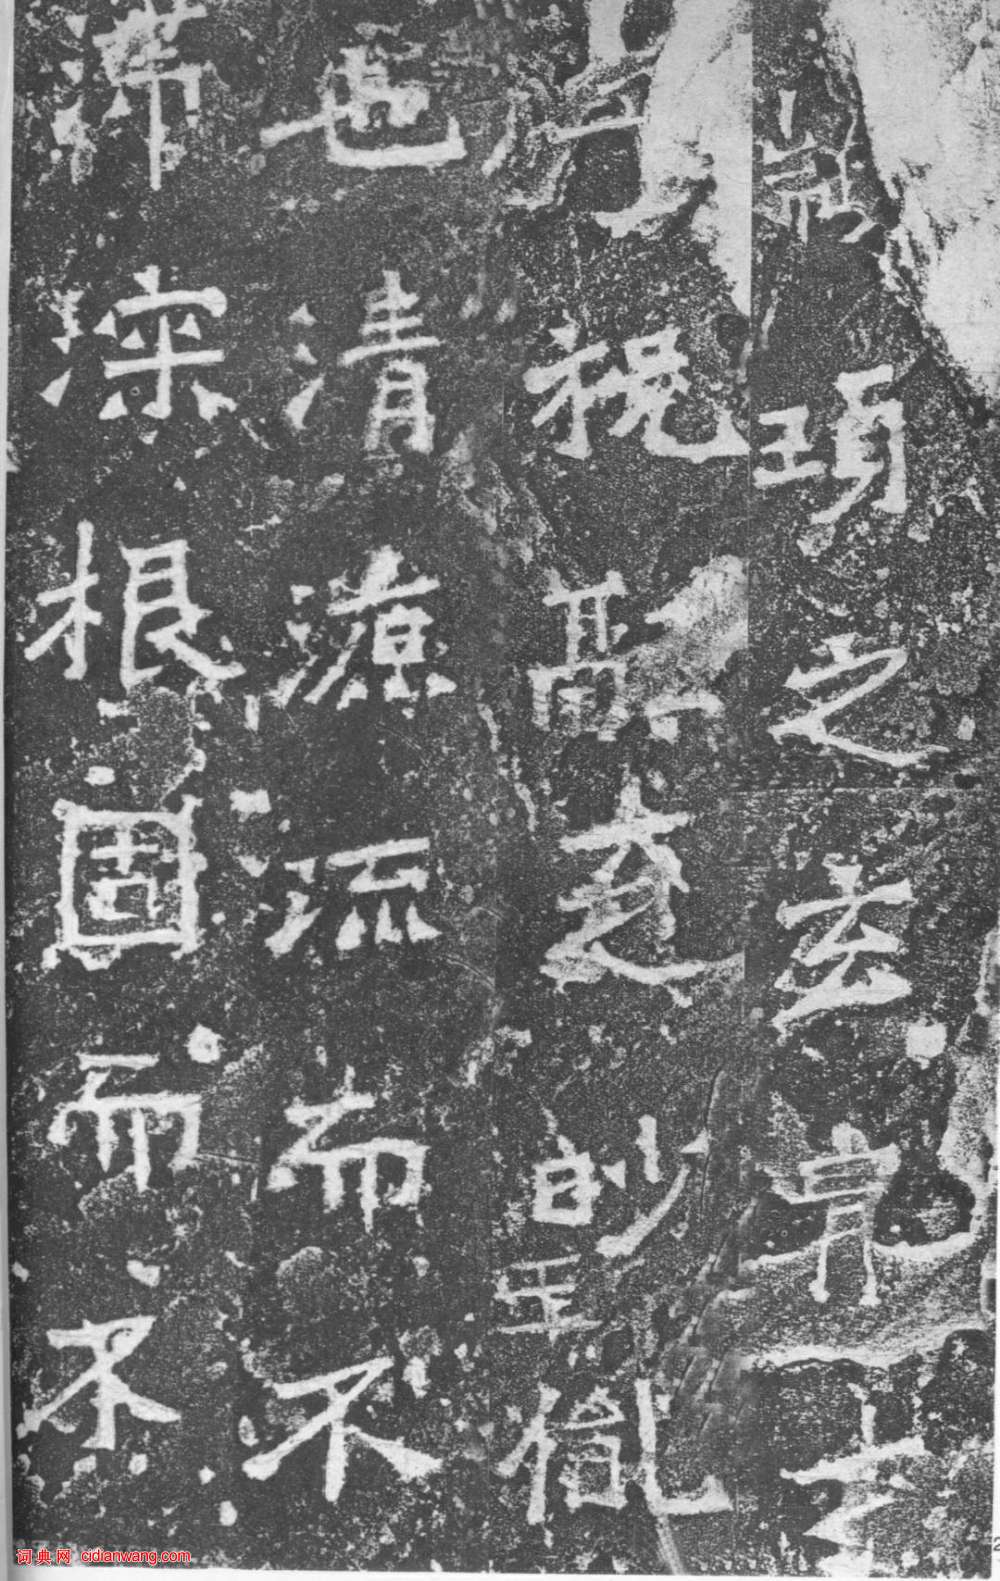 顓頊之玄胄
祝融之眇胤
也清源流而不
滯深根固而不
词典网 cidianwang.com